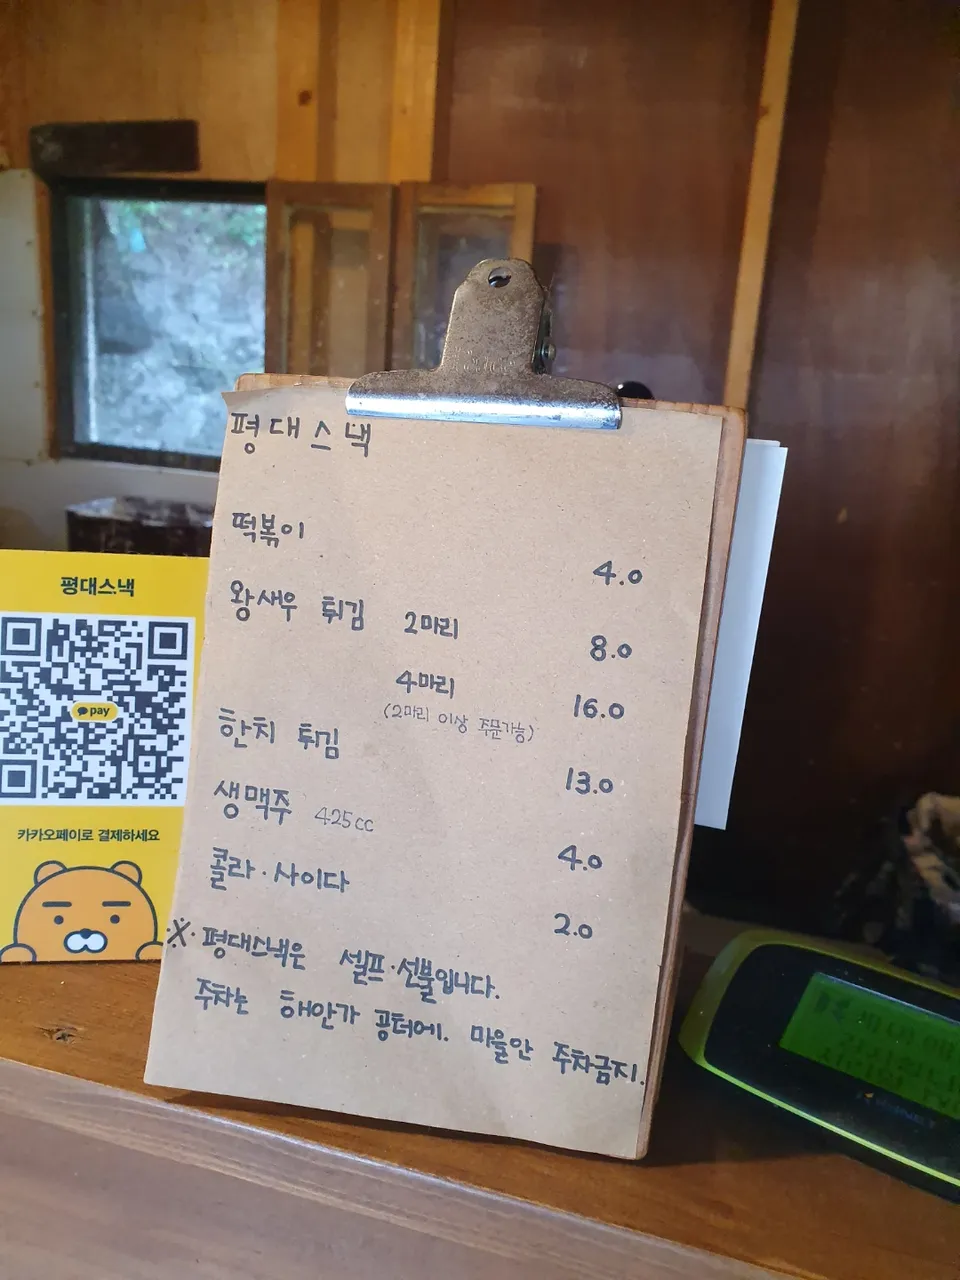 평대스낵
떡볶이 4.0
왕새우 튀김 2마리 8.0
4마리 16.0
(2마리 이상 주문가능)
한치 튀김 13.0
생맥주 425cc 4.0
콜라·사이다 2.0
※·평대스낵은 셀프·선불입니다.
주차는 해안가 공터에. 마을안 주차금지.
평대스낵
pay
카카오페이로 결제하세요